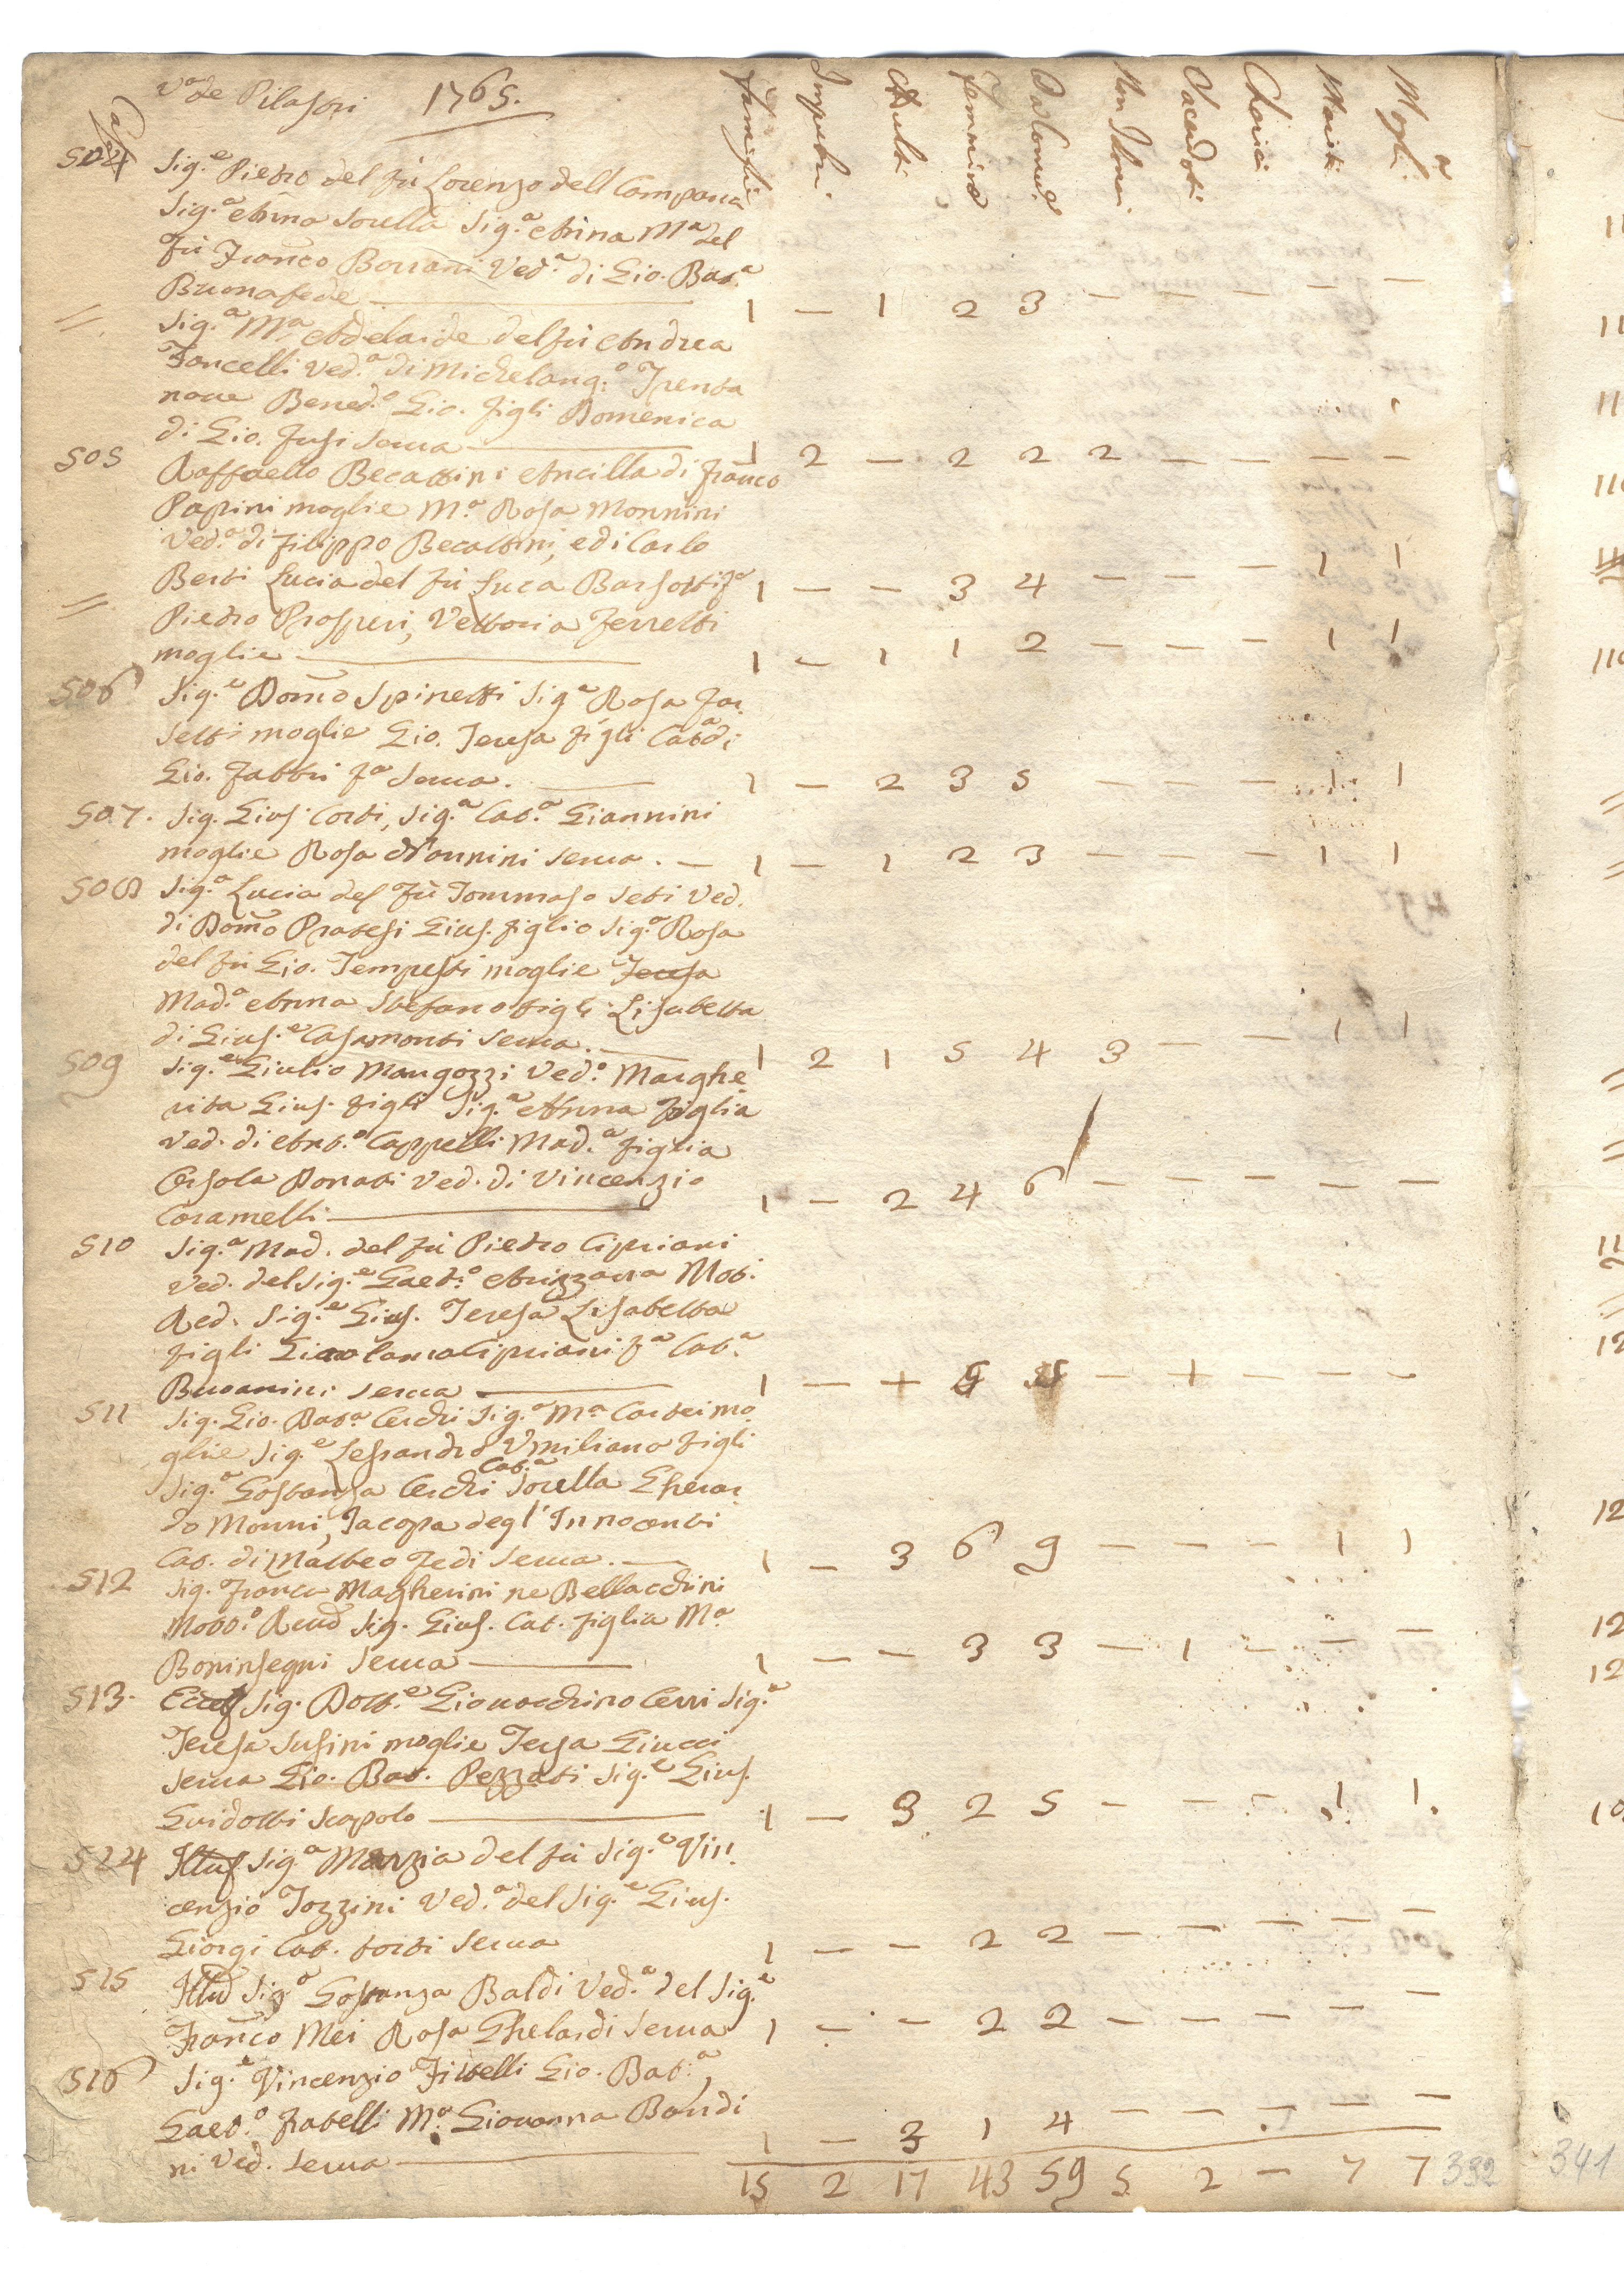 V.a de Pilastri 1765.
Case
Famiglie Impuberi Adulti Femmine Da Com.e Non Idonei Sacerdoti Cherici Mariti Mogli
504 Sig.e Pietro del fù Lorenzo dell Campana
Sig.a Anna Sorella Sig.a Anna M.a del
fù Franco Borrani Ved.a di Gio. Bat.a
Buonafede 1 — 1 2 3 — — — — —
// Sig.a M.a Adelaide del fù Andrea
Foncelli Ved.a di Michelang.o Trenta
nove Bened.o Gio. figli Domenica
di Gio. Fusi Serua 1 2 — 2 2 2 — — — —
505 Raffaello Becattini Ancilla di Franco
Papini moglie M.a Rosa Monnini
Ved.a di Filippo Becattini, e di Carlo
Berti Lucia del fù Luca Barsotti f.a 1 — — 3 4 — — — 1 1
// Pietro Prosperi, Vettoria Ferretti
moglie 1 — 1 1 2 — — — 1 1
506 Sig.e Domco Spinetti Sig.a Rosa Far
setti moglie Gio. Teresa figli Cat.a di
Gio. Fabbri f.a Serua. 1 — 2 3 5 — — — 1 1
507. Sig. Gius. Corti, Sig.a Cat.a Giannini
moglie Rosa Nannini Serua. 1 — 1 2 3 — — — 1 1
508 Sig.a Lucia del fù Tommaso Seti Ved.
di Domco Pratesi Gius. figlio Sig.a Rosa
del fù Gio. Tempesti moglie Teresa
Mad.a Anna Stefano figli Lisabetta
di Gius.e Casamonti Serua. 1 2 1 5 4 3 — — 1 1
509 Sig.e Giulio Mangozzi Ved.o Marghe
rita Gius. figli Sig.a Anna figlia
Ved. di Ant.o Cappelli Mad.a figlia
Orsola Donati Ved. di Vincenzio
Coramelli 1 — 2 4 6 — — — — —
510 Sig.a Mad. del fù Pietro Cipriani
Ved. del Sig.e Gaet.o Arizzara Mot.
Red. Sig.e Gius. Teresa Lisabetta
figli Girolama Cipriani f.a Cat.a
Buoanini Serua 1 — + 5 — 1 — — —
511 Sig. Gio. Bat.a Cerchi Sig.a M.a Carteimo
glie Sig.e Lessandro Vmiliano figli
Sig.a Gostanza Cerchi Cat.a Sorella Gherar
do Monni, Jacopa degl'Innocenti
Cat. di Matteo Fedi Serua. 1 — 3 6 9 — — — 1 1
512 Sig. Franco Magherini ne Bellacchini
Mott.o Reud Sig. Gius. Cat. figlia M.a
Boninsegni Serua 1 — — 3 3 — 1 — — —
513. Sig. Dott.e Giouacchino Cerri Sig.a
Teresa Susini moglie Tersa Giucci
Serua Gio. Bat. Pezzati Sig.e Gius.
Guidotti Scapolo 1 — 3 2 5 — — — 1 1
524 Sig.a Marzia del fù Sig.e Vin
cenzio Tozzini Ved.a del Sig.e Gius.
Giorgi Cat. torti Serua 1 — — 2 2 — — — — —
515 Sig.a Gostanza Baldi Ved.a del Sig.e
Franco Mei Rosa Ghelardi Serua 1 — — 2 2 — — — — —
516 Sig.e Vincenzio Fiwelli Gio. Bat.a,
Gaet.o fratelli M.a Giouanna Bandi
ni Ved. Serua 1 — 3 1 4 — — — — —
15 2 17 43 59 5 2 — 7 7
332
341